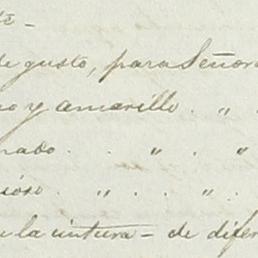 te -
de gusto, para Señora
no y amarillo . „ „
nado . . „ . „
„ . . „ .
la cintura - de difer